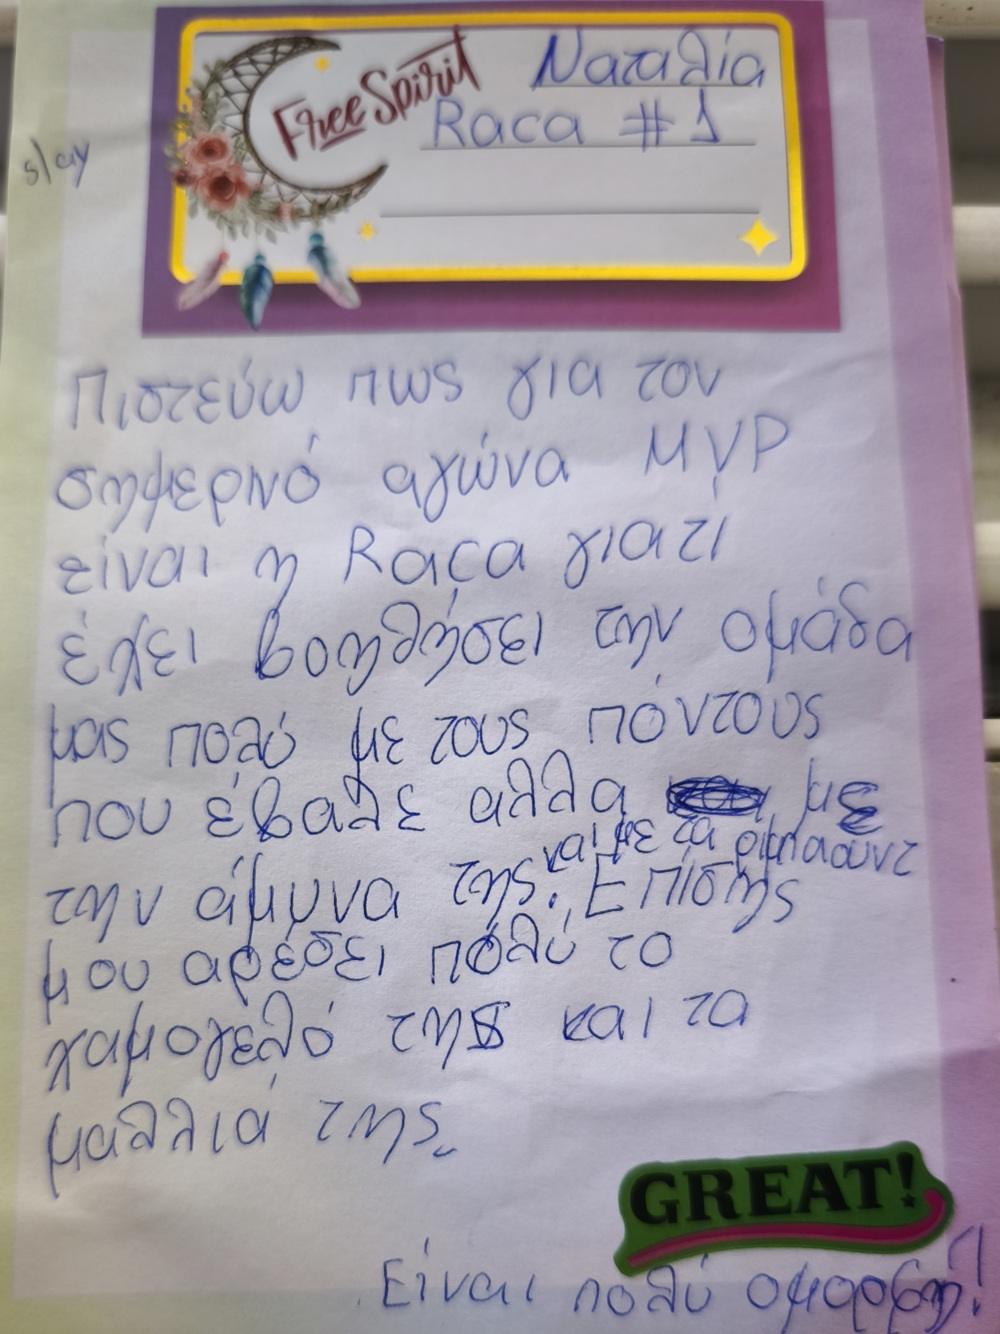 Free Spirit
Ναταλία
Raca #1
slay
Πιστεύω πως για τον
σημερινό αγώνα MVP
είναι η Raca γιατί
έχει βοηθήσει την ομάδα
μας πολύ με τους πόντους
που έβαλε αλλα με
την άμυνα της. Επίσης
και με τα
μου αρέσει πολύ το
χαμογελό της και τα
μαλλιά της
GREAT!
Είναι πολύ ομορφη!